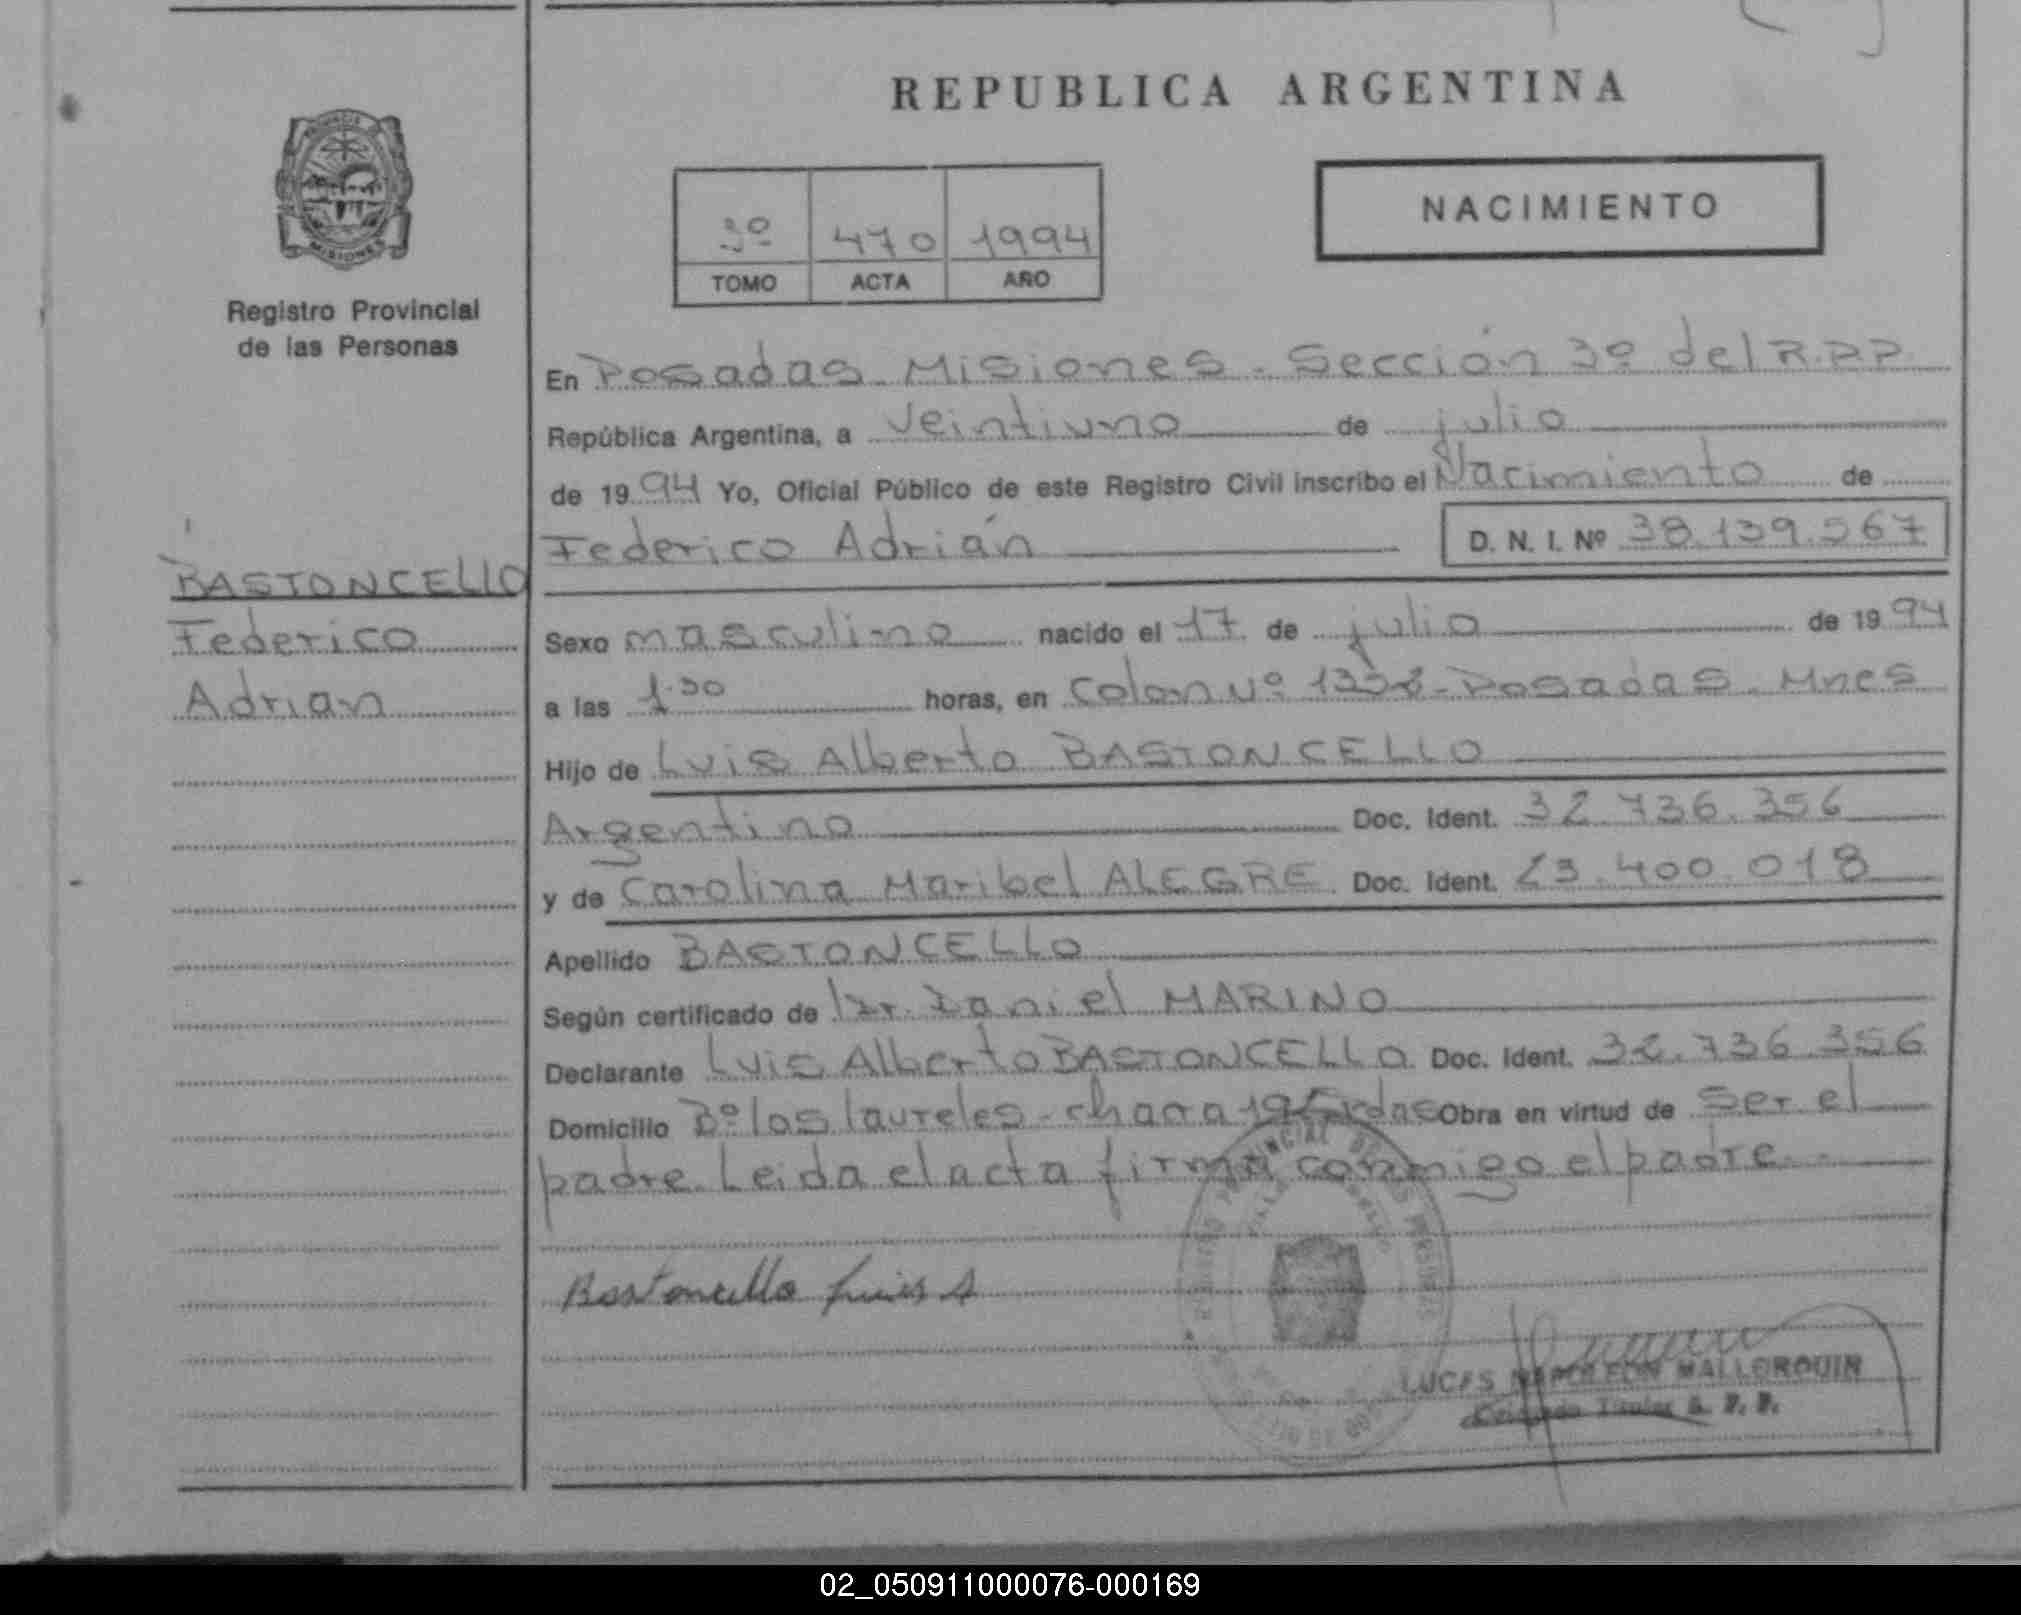 REPUBLICA ARGENTINA
PROVINCIA
MISIONES
Registro Provincial
de las Personas
NACIMIENTO
3º 470 1994
TOMO ACTA AÑO
En Posadas Misiones - Sección 3º del R.P.P
República Argentina, a veintiuno de julio
de 1994 Yo, Oficial Público de este Registro Civil inscribo el Nacimiento de
Federico Adrián D. N. I. Nº 38.139.567
BASTONCELLO
Federico
Adrian
Sexo masculino nacido el 17 de julio de 1994
a las 1.30 horas, en Colon Nº - Posadas. Mnes
Hijo de Luis Alberto BASTONCELLO
Argentino Doc. Ident. 32.736.356
y de Carolina Maribel ALEGRE Doc. Ident. 23.400.018
Apellido BASTONCELLO
Según certificado de Dr. Daniel MARINO
Declarante Luis Alberto BASTONCELLO Doc. Ident. 32.736.356
Domicilio Bº los laureles - chacra Obra en virtud de ser el
padre. Leida el acta firma conmigo el padre.
Bastoncello Luis A
LUCAS NAPOLEON MALLORQUIN
Titular R. P. P.
02_050911000076-000169